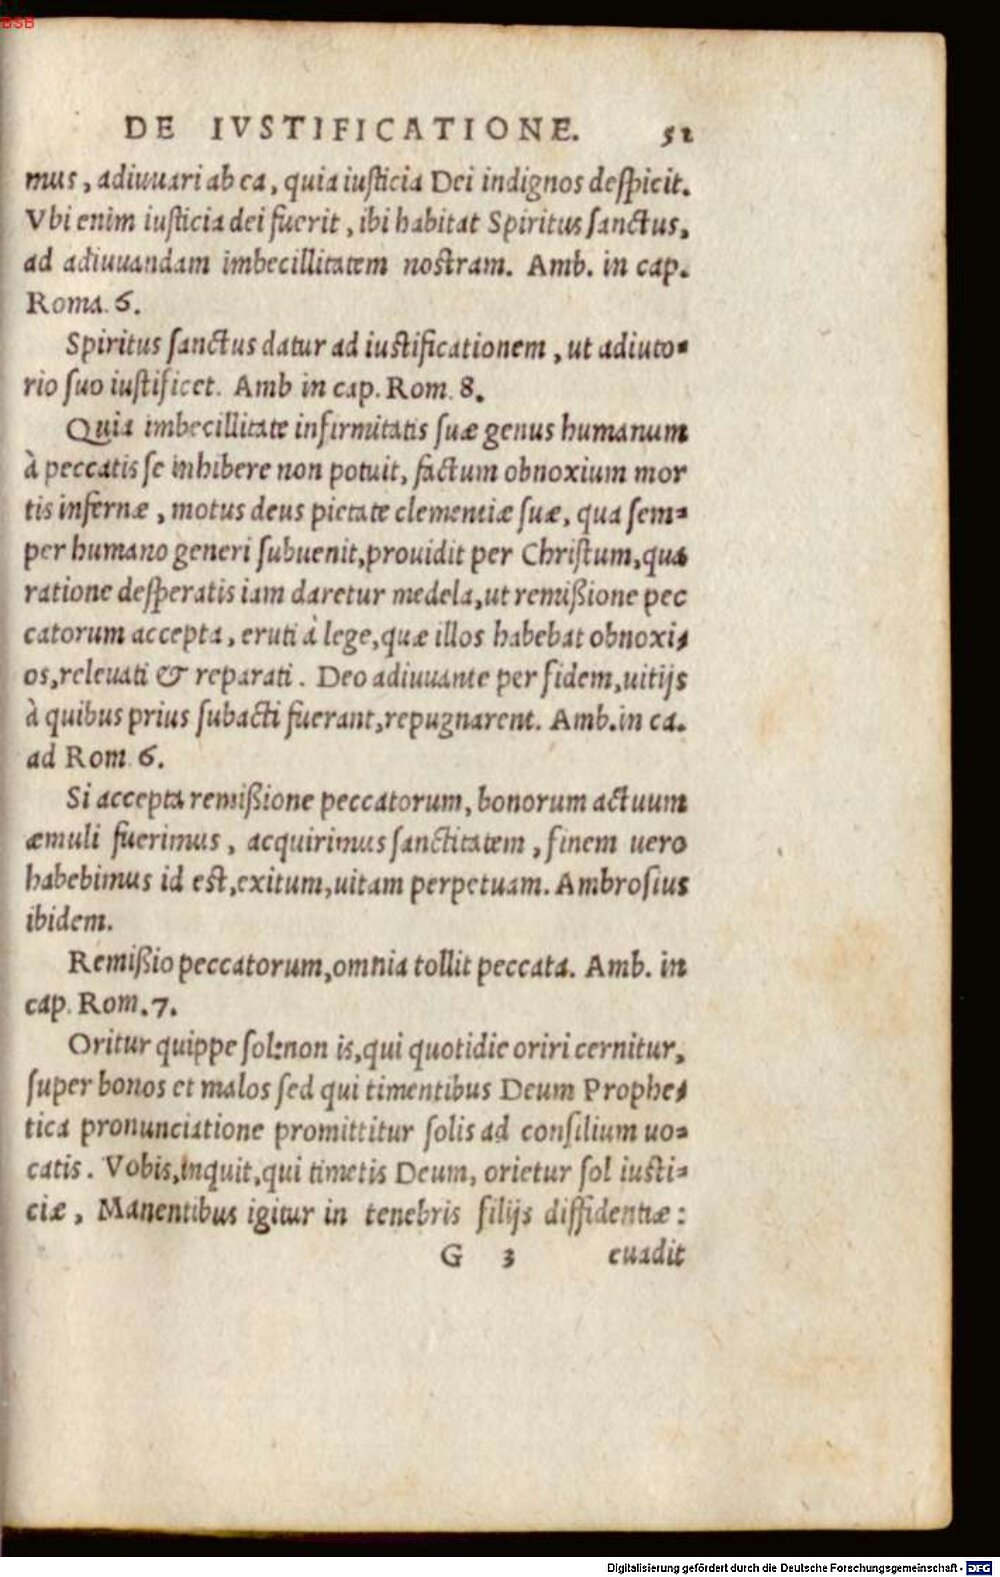 BSB
DE IVSTIFICATIONE. 51
mus, adiuuari ab ea, quia iusticia Dei indignos despicit.
Vbi enim iusticia dei fuerit, ibi habitat Spiritus sanctus,
ad adiuuandam imbecillitatem nostram. Amb. in cap.
Roma. 6.
Spiritus sanctus datur ad iustificationem, ut adiuto-
rio suo iustificet. Amb in cap. Rom. 8.
Quia imbecillitate infirmitatis suæ genus humanum
à peccatis se inhibere non potuit, factum obnoxium mor
tis infernæ, motus deus pietate clementiæ suæ, qua sem-
per humano generi subuenit, prouidit per Christum, qua
ratione desperatis iam daretur medela, ut remißione pec
catorum accepta, eruti à lege, quæ illos habebat obnoxi-
os, releuati & reparati. Deo adiuuante per fidem, uitijs
à quibus prius subacti fuerant, repugnarent. Amb. in ca.
ad Rom. 6.
Si accepta remißione peccatorum, bonorum actuum
æmuli fuerimus, acquirimus sanctitatem, finem uero
habebimus id est, exitum, uitam perpetuam. Ambrosius
ibidem.
Remißio peccatorum, omnia tollit peccata. Amb. in
cap. Rom. 7.
Oritur quippe sol: non is, qui quotidie oriri cernitur,
super bonos et malos sed qui timentibus Deum Prophe-
tica pronunciatione promittitur solis ad consilium uo-
catis. Vobis, inquit, qui timetis Deum, orietur sol iusti-
ciæ, Manentibus igitur in tenebris filijs diffidentiæ:
G 3 euadit
Digitalisierung gefördert durch die Deutsche Forschungsgemeinschaft - DFG